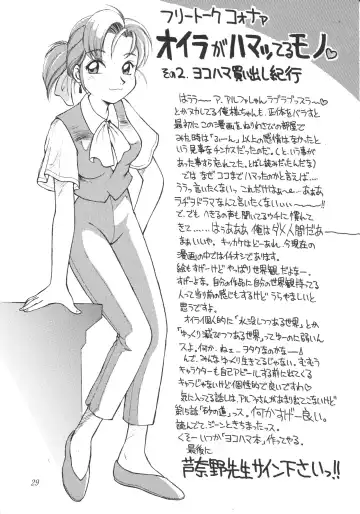 フリートーク コォナァ
オイラがハマッてるモノ♡
その2. ヨコハマ買い出し紀行
はうう〜 ア、アルファしゃんラブラブっスラ〜♡
とかヌカしてる俺様ちゃんも、正体をバラすと
最初にこの漫画をねりわさびの部屋で
みた時は「ふーん」以上の感情はなかったと
いう見事なチンカスだったのだ。くという事が
あった事すら忘れてた。とばし読みだたんだな)
では なぜココまでハマったのかと言えば…
ううっ言いたくない。これだけはぁ〜ぁぁあ
ラヂヲドラマなんて言いたくないぃぃ〜っ!!
でも、べきるの声も聞いてるウチに慣れて
きて… はぅあああ 俺はダメ人間だあっ
まぁいいや。キッカケはどーあれ、今現在の
漫画の中ではイチオシであります。
絵もすげーけど やっぱり世界観だよなー。
すげーよなぁ。自分の作品に自分の世界観持ってる
人って当り前の感じもするけど うらやましいと
思うですよ。
オイラ個人的に「水没しつつある世界」とか
「ゆっくり滅びつつある世界」ってゆーのに弱いん
スよ。何か。ねェー ヲタクなのかなー!
んで、みんなゆっくり生きてるじゃない。むぅう
キャラクターも自己アピールする前に出てくる
キャラじゃないけど個性的で良いですわ♡
気に入ってる話しは、アルファさんがあまり出てこないけど
第15話「砂の道」っス。何かすげー良い。
読んでて、ジーンときちまったっス。
くそー いつか「ヨコハマ本」作ってやる。
最後に
芦奈野先生サイン下さいっ!!
29